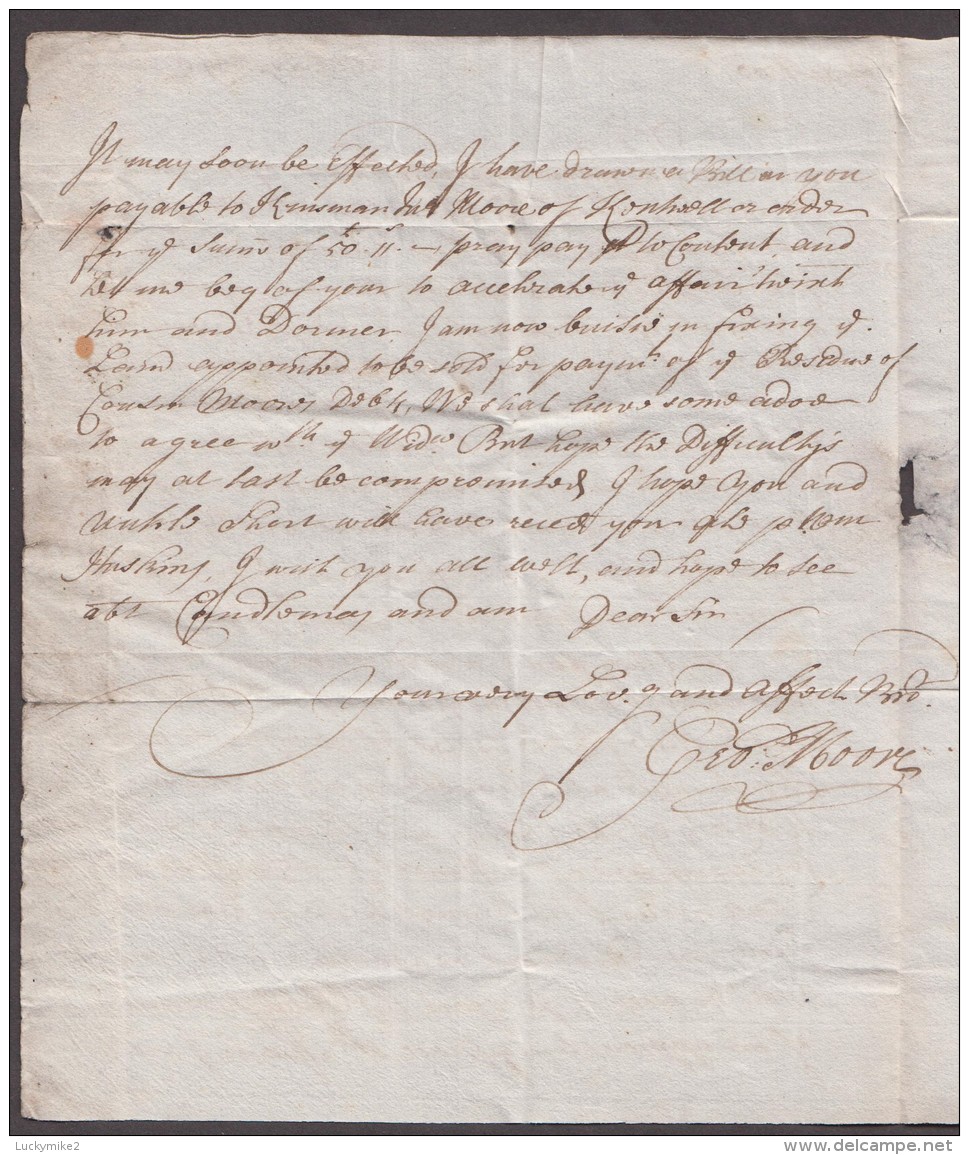 It may soon be Effected, I have drawn a Bill on you
payable to Kinsman Jno Moore of Kentwell or order
for ye Sum̃ of 50 - pray pay it to Content and
let me beg of your to accelrate ye affair twixt
him and Dormer, I am now buisie in fixing ye
Land appointed to be sold for paymt of ye Residue of
Cousin Moores Debts, We shal have some adoe
to agree wth ye Widw But hope the Difficultys
may at last be compromised, I hope you and
Unkle Short will have reced you
Huskins, I wish you all well, and hope to see
abt Candlemas and am Dear Sir
Your very Lov:g and Affect Bro.
Geo: Moore
Luckymike2
www.delcampe.net